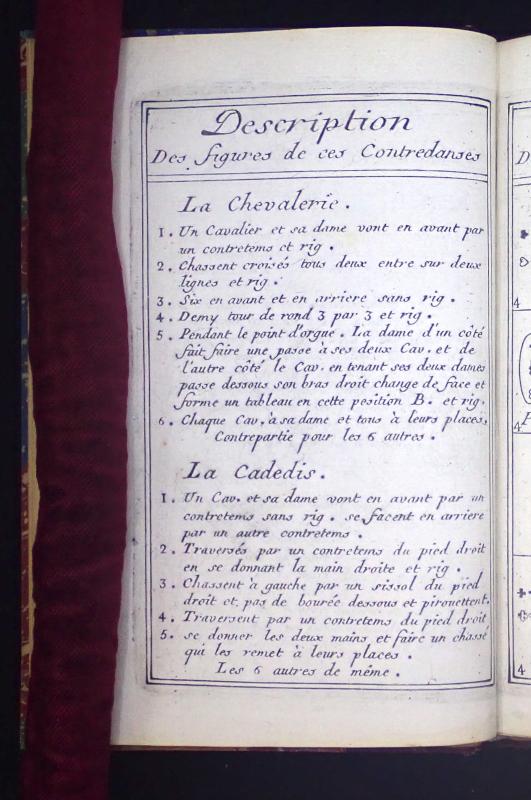 Description
Des figures de ces Contredanses
La Chevalerie.
1. Un Cavalier et sa dame vont en avant par
un contretems et rig.
2. Chassent croisés tous deux entre sur deux
lignes et rig.
3. Six en avant et en arriere sans rig.
4. Demy tour de rond 3 par 3 et rig.
5. Pendant le point d'orgue. La dame d'un côté
fait faire une passe à ses deux Cav. et de
l'autre côté le Cav. en tenant ses deux dames
passe dessous son bras droit change de face et
forme un tableau en cette position B. et rig.
6. Chaque Cav. à sa dame et tous à leurs places,
Contrepartie pour les 6 autres.
La Cadedis.
1. Un Cav. et sa dame vont en avant par un
contretems sans rig. se facent en arriere
par un autre contretems.
2. Traversés par un contretems du pied droit
en se donnant la main droite et rig.
3. Chassent à gauche par un sissol du pied
droit et pas de bourée dessous et pirouettent.
4. Traversent par un contretems du pied droit
5. se donner les deux mains et faire un chassé
qui les remet à leurs places.
Les 6 autres de même.
D
4
4
P
4